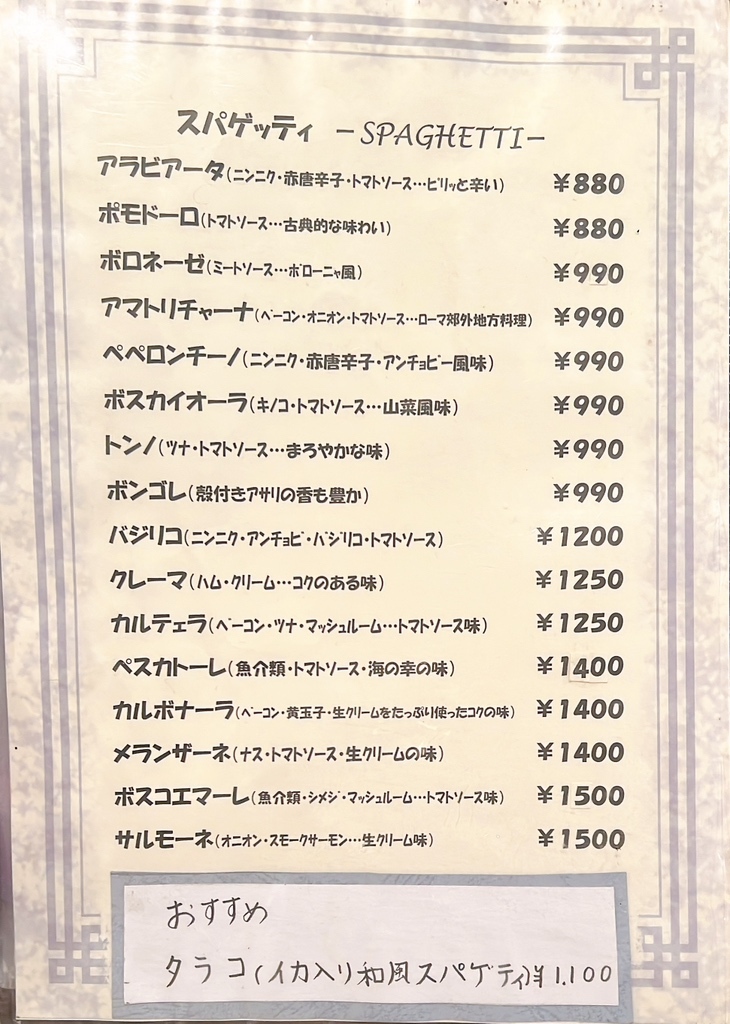 スパゲッティ －SPAGHETTI－
アラビアータ(ニンニク・赤唐辛子・トマトソース…ピリッと辛い) ¥880
ポモドーロ(トマトソース…古典的な味わい) ¥880
ボロネーゼ(ミートソース…ボローニャ風) ¥990
アマトリチャーナ(ベーコン・オニオン・トマトソース…ローマ郊外地方料理) ¥990
ペペロンチーノ(ニンニク・赤唐辛子・アンチョビー風味) ¥990
ボスカイオーラ(キノコ・トマトソース…山菜風味) ¥990
トンノ(ツナ・トマトソース…まろやかな味) ¥990
ボンゴレ(殻付きアサリの香も豊か) ¥990
バジリコ(ニンニク・アンチョビ・バジリコ・トマトソース) ¥1200
クレーマ(ハム・クリーム…コクのある味) ¥1250
カルテェラ(ベーコン・ツナ・マッシュルーム…トマトソース味) ¥1250
ペスカトーレ(魚介類・トマトソース・海の幸の味) ¥1400
カルボナーラ(ベーコン・黄玉子・生クリームをたっぷり使ったコクの味) ¥1400
メランザーネ(ナス・トマトソース・生クリームの味) ¥1400
ボスコエマーレ(魚介類・シメジ・マッシュルーム…トマトソース味) ¥1500
サルモーネ(オニオン・スモークサーモン…生クリーム味) ¥1500
おすすめ
タラコ(イカ入り和風スパゲティ)¥1.100